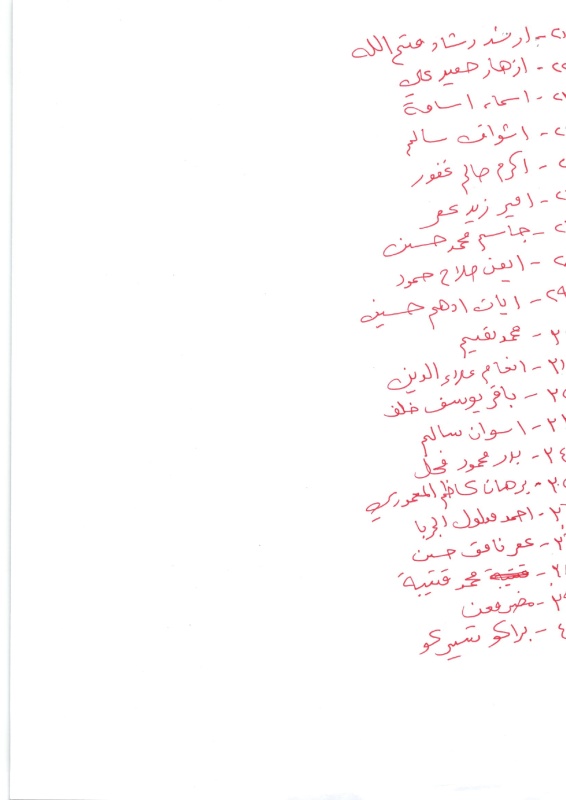 ٢١ - ارشد رشاد فتح الله
٢٢ - ازهار حميد علي
٢٣ - اسماء اسامة
٢ - اشواق سالم
٢ - اكرم صالح غفور
٢ - امير زيد عمر
٢ - جاسم محمد حسين
٢٨ - ايمن صلاح حمود
٢٩ - ايات ادهم حسين
٣ - محمد نعيم
٣١ - انغام علاء الدين
٣٢ - باقر يوسف خلف
٣٣ - اسوان سالم
٣٤ - بدر محمود فحل
٣٥ - برهان كاظم المعموري
٣٦ - احمد مدلول الجربا
٣ - عمر نافق حسن
٣٨ - محمد قتيبة
٣٩ - مضر معن
٤ - براكو تسيركو